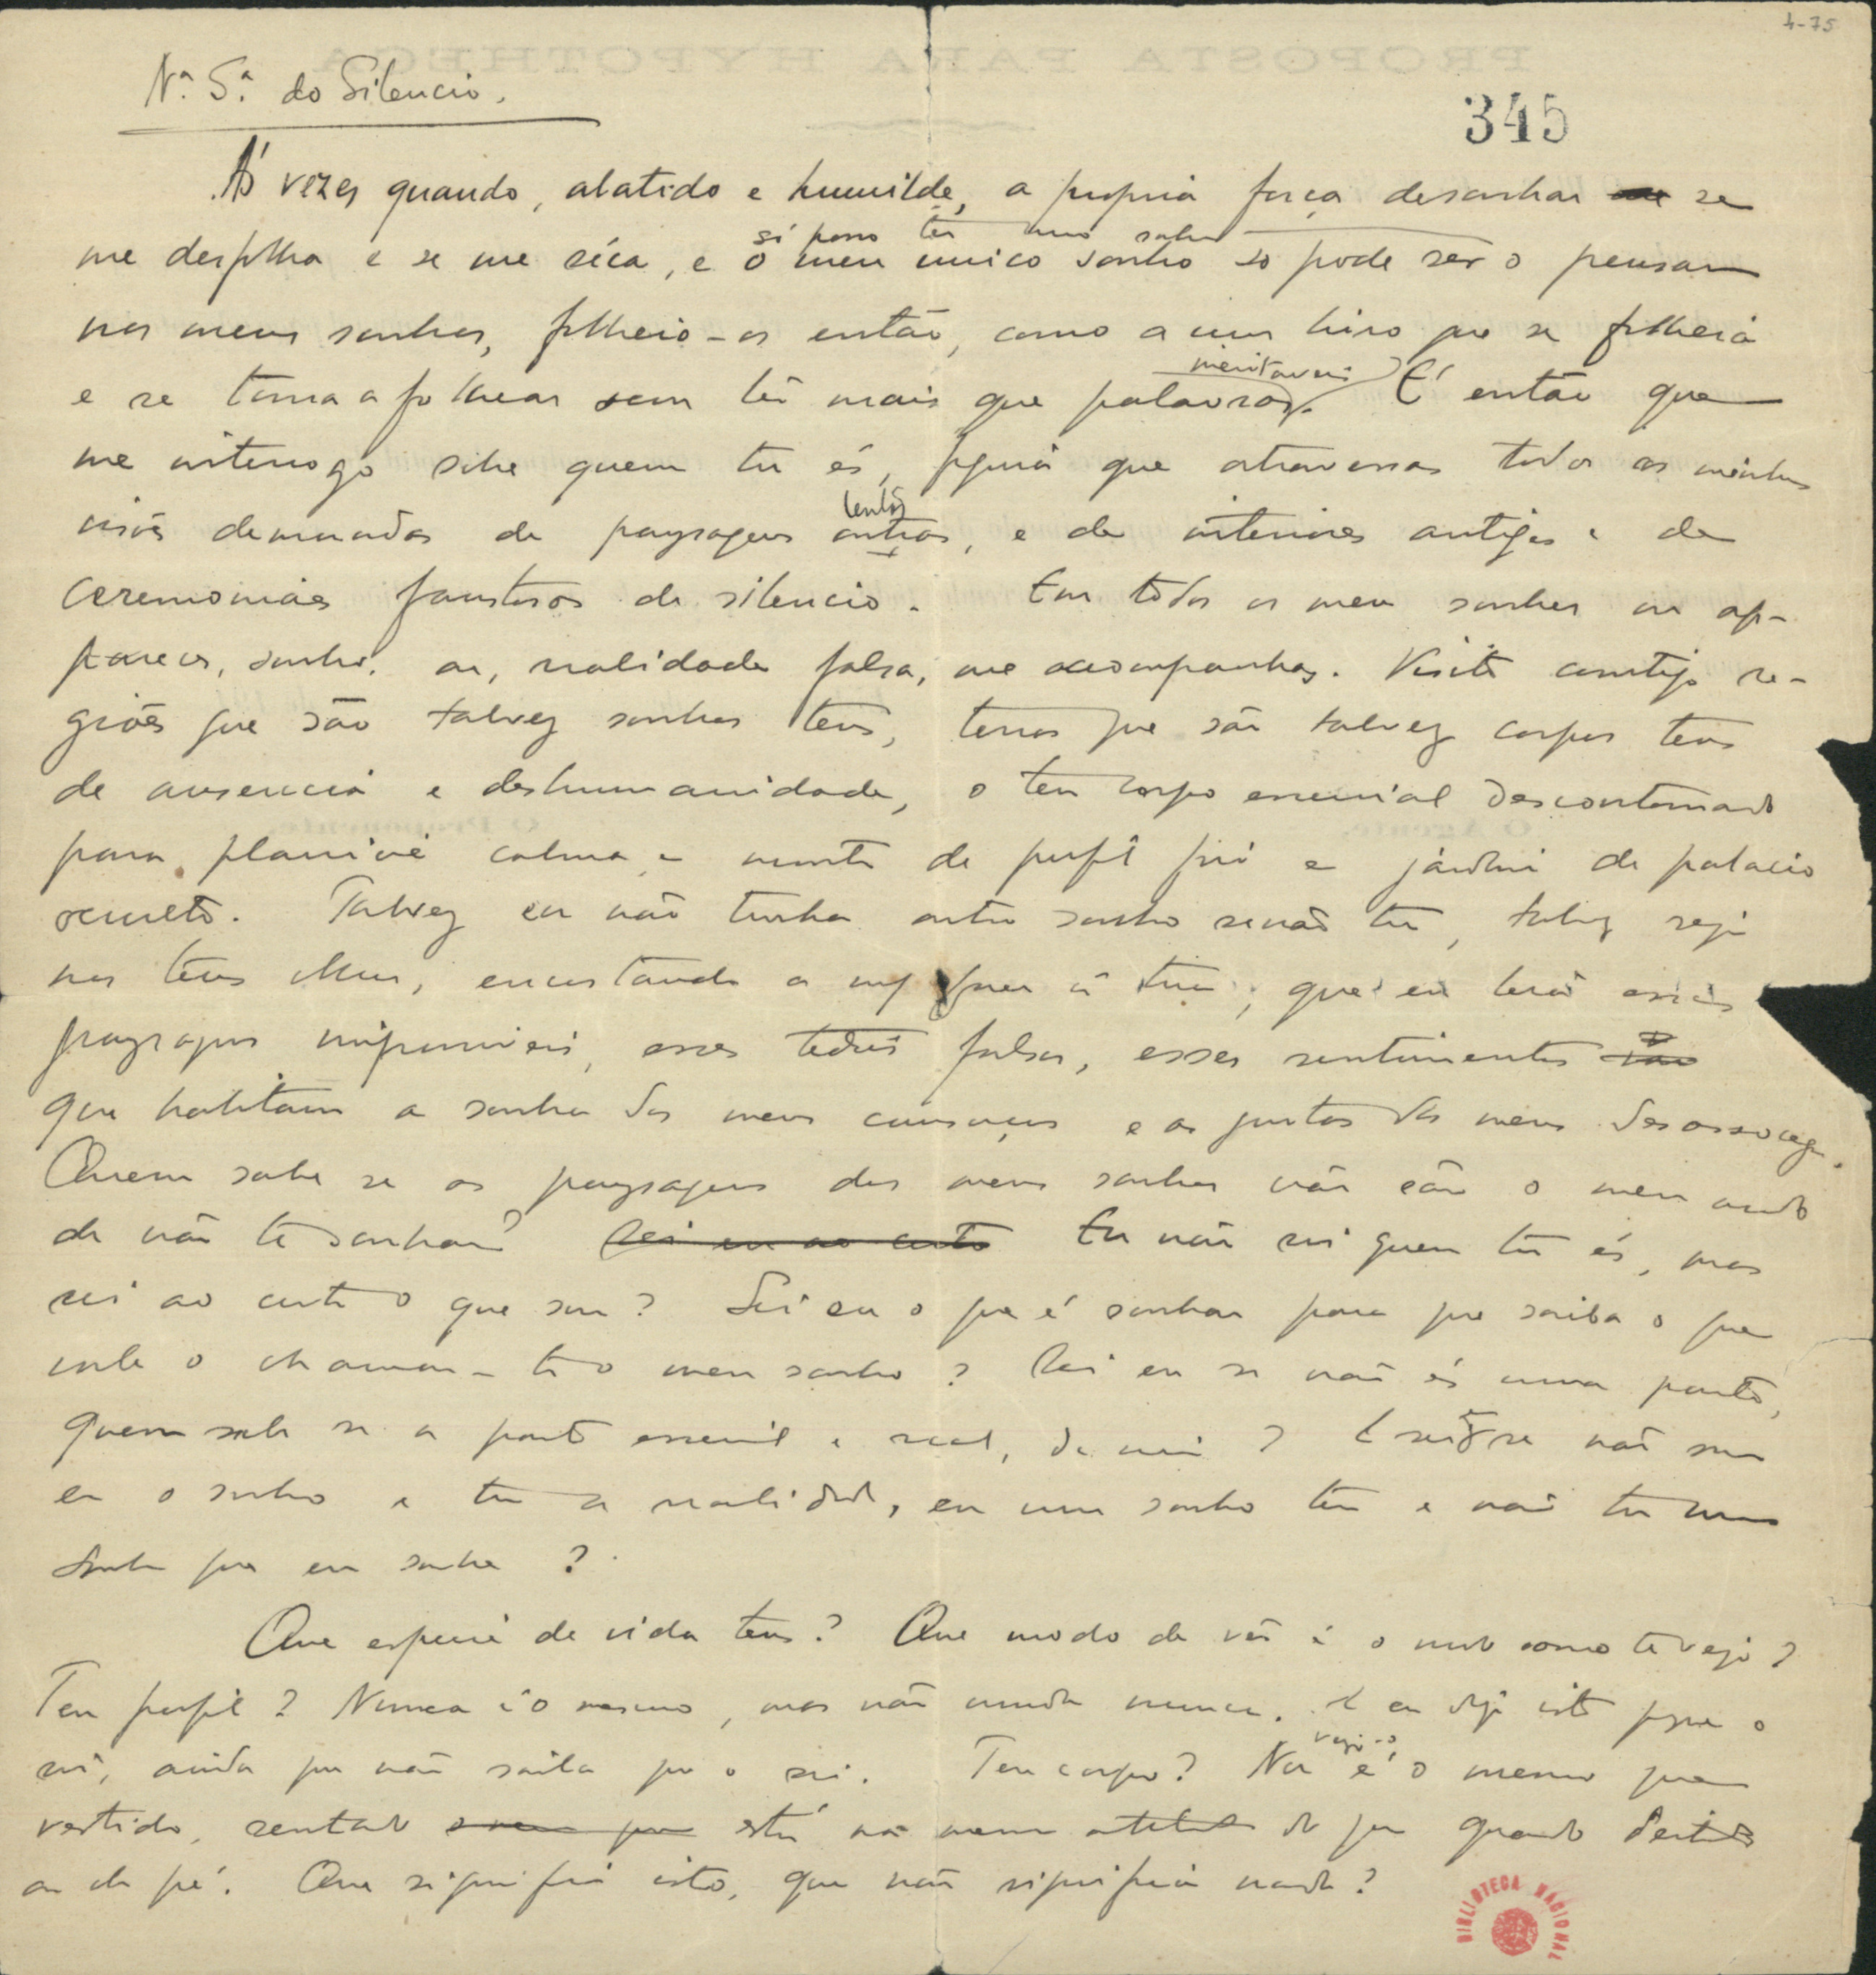 4-75
PROPOSTA PARA HYPOTHECA
Nª. Sª. do Silencio.
345
Ás vezes quando, abatido e humilde, a propria força de sonhar se
só posso ter um sonho
me desfolha e se me sécca, e o meu unico sonho só pode ser o pensar
nos meus sonhos, folheio-os então, como a um livro que se folheia
inevitaveis
e se torna a folhear sem ler mais que palavras. É então que
me interrogo sobre quem tu és, figura que atravessas todas as minhas
lentas
visões demoradas de paysagens outras, e de interiores antigos e de
ceremonias faustosas de silencio. Em todos os meus sonhos ou ap-
pareces, sonho, ou, realidade falsa, me acompanhas. Visito comtigo re-
giões que são talvez sonhos teus, terras que são talvez corpos teus
de ausencia e deshumanidade, o teu corpo essencial descontornado
para planicie calma e monte de perfil frio e jardim de palacio
occulto. Talvez eu não tenha outro sonho senão tu, talvez seja
nos teus olhos, encostando a m/ face á tua, que eu lerei essas
paysagens impossiveis, esses tedios falsos, esses sentimentos
que habitam a sombra dos meus cansaços e as grutas dos meus desassocegos.
Quem sabe se as paysagens dos meus sonhos não são o meu modo
de não te sonhar? Sei eu ao certo Eu não sei quem tu és, mas
sei ao certo o que sou? Sei eu o que é sonhar para que saiba o que
vale o chamar-te o meu sonho? Sei eu se não és uma parte,
quem sabe se a parte essencial e real, de mim? E sei eu se não sou
eu o sonho e tu a realidade, eu um sonho teu e não tu um
sonho que eu sonhe?
Que especie de vida tens? Que modo de ver é o modo como te vejo?
Teu perfil? Nunca é o mesmo, mas não muda nunca. E eu digo isto porque o
sei, ainda que não saiba que o sei.
vejo-o,
Teu corpo? Nu é o mesmo que
vestido, sentado está na mesma attitude do que quando deitado
ou de pé. Que significa isto, que não significa nada?
BIBLIOTECA NACIONAL